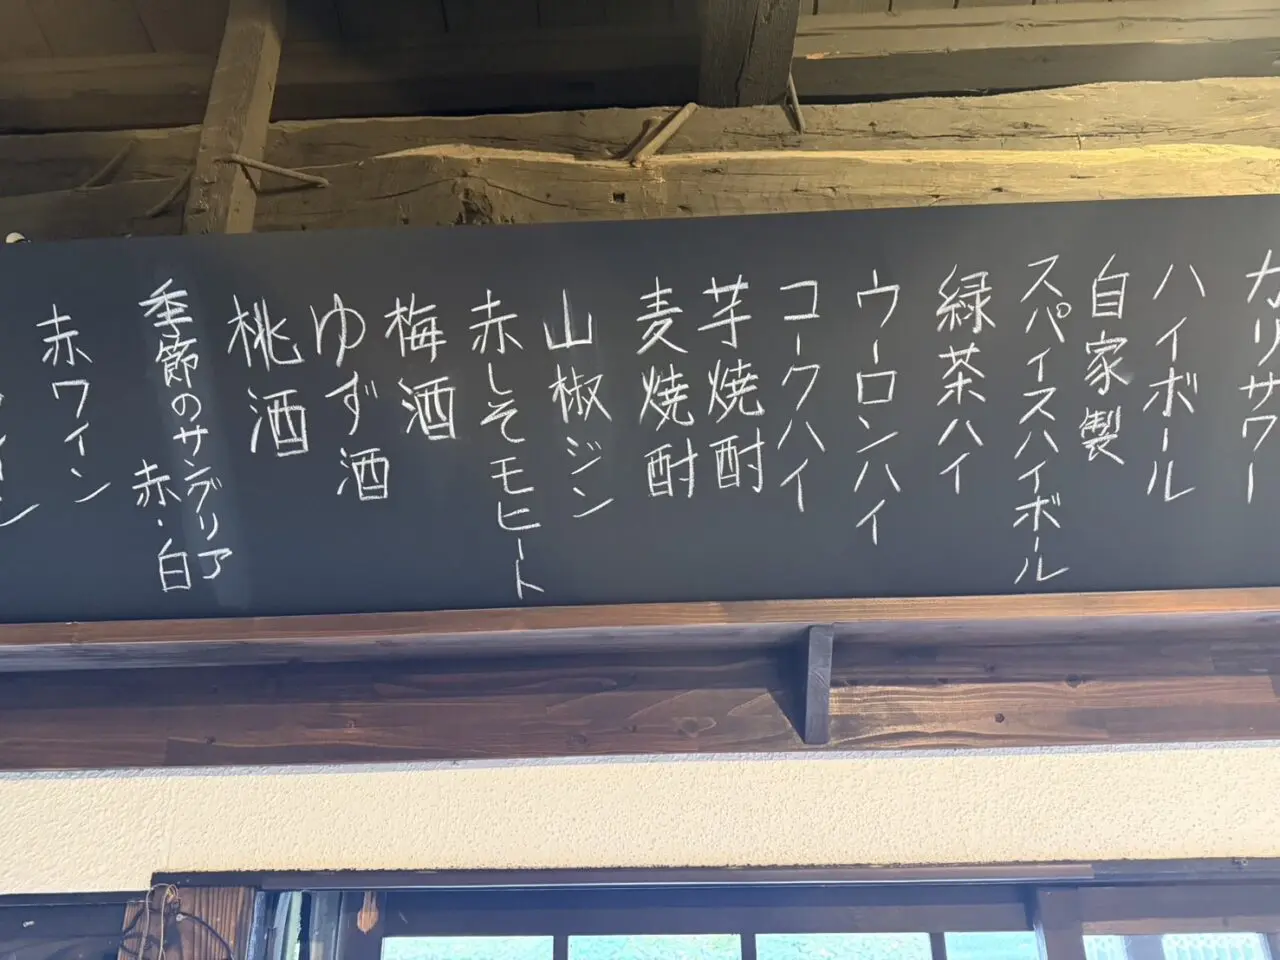 ガリサワー
ハイボール
自家製
スパイスハイボール
緑茶ハイ
ウーロンハイ
コークハイ
芋焼酎
麦焼酎
山椒ジン
赤しそモヒート
梅酒
ゆず酒
桃酒
季節のサングリア
赤・白
赤ワイン